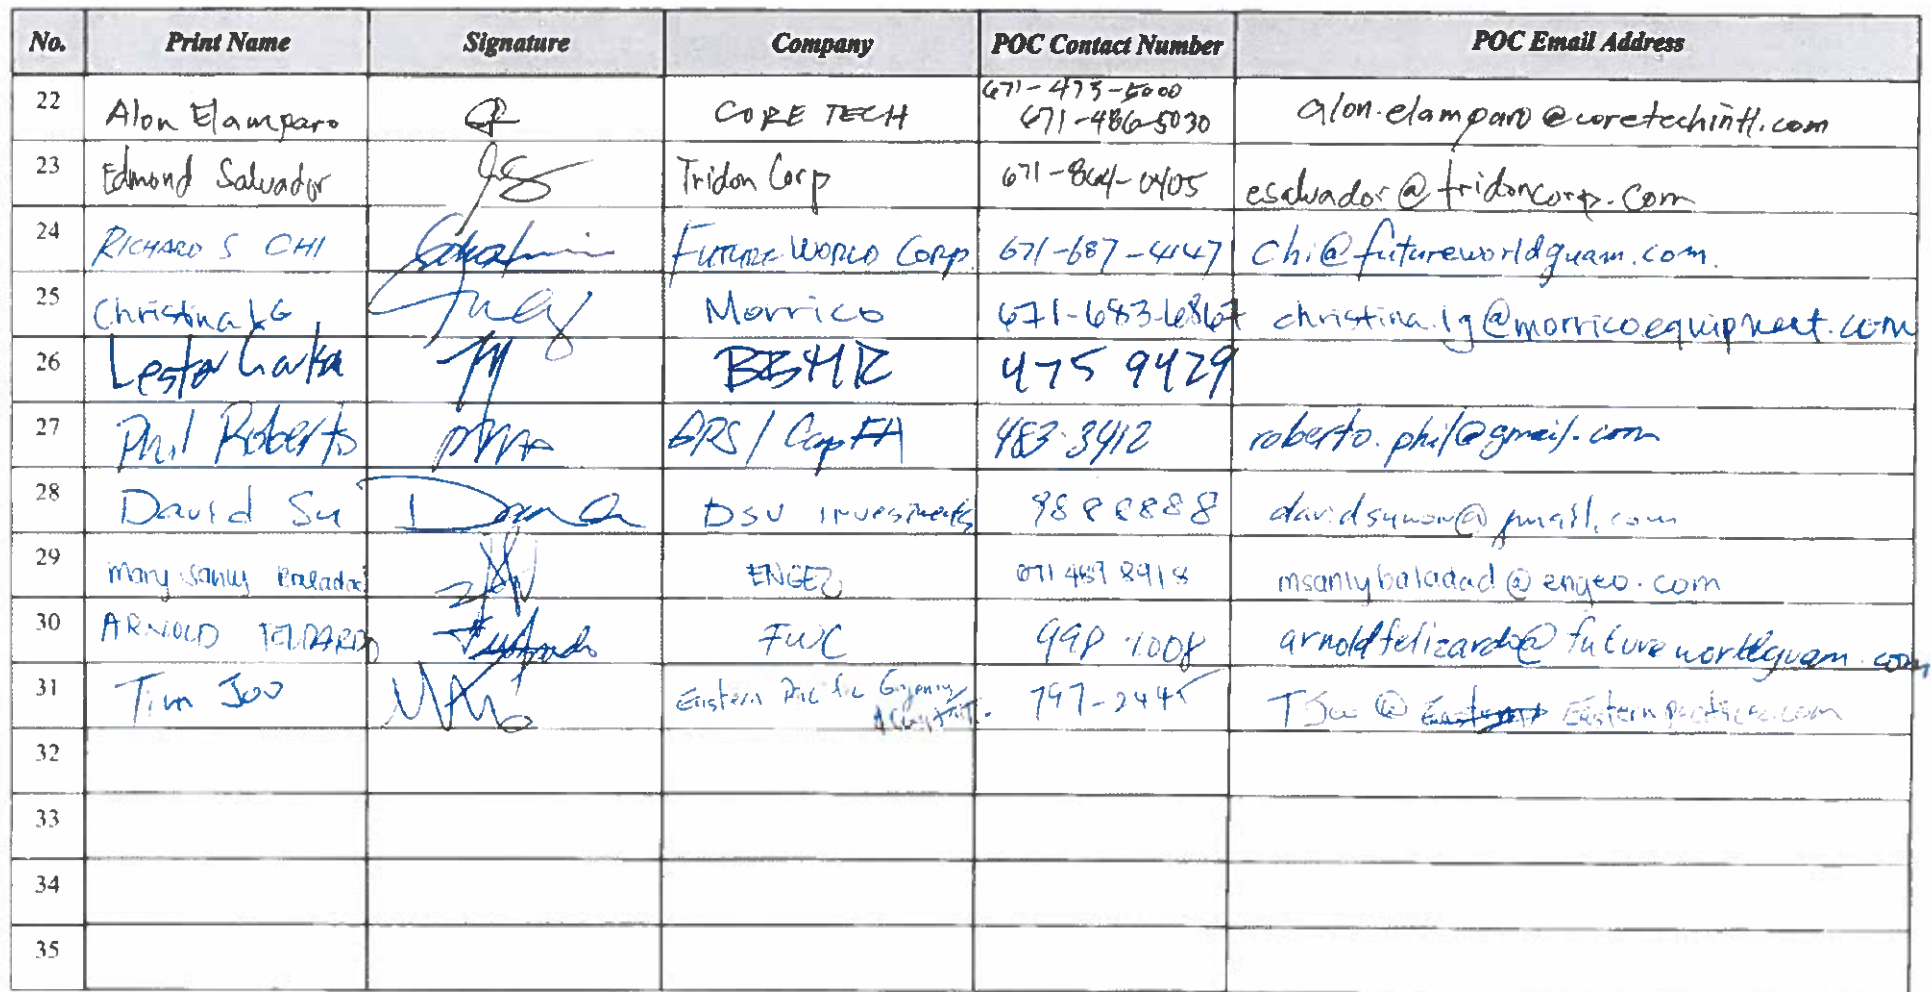 No. Print Name Signature Company POC Contact Number POC Email Address
671-473-5000
22 Alon Elamparo CORE TECH 671-486-5030 alon.elamparo@coretechintl.com
23 Edmond Salvador Tridon Corp 671-864-0405 esalvador@tridoncorp.com
24 RICHARD S CHI FUTURE WORLD CORP. 671-687-4147 chi@futureworldguam.com.
25 Christina LG Morrico 671-683-6867 christina.lg@morricoequipment.com
26 Lester BBMR 475 9429
27 Phil Roberto GRS / CapFA 483-3412 roberto.phil@gmail.com
28 David Su DSU Investments 9888888
29 Mary Sanly Baladad ENGEO 671 487 8918 msanlybaladad@engeo.com
30 ARNOLD FELIZARDO FWC 998-1008 arnoldfelizardo@futureworldguam.com
31 Tim Joo Eastern Pacific 797-2445
32
33
34
35